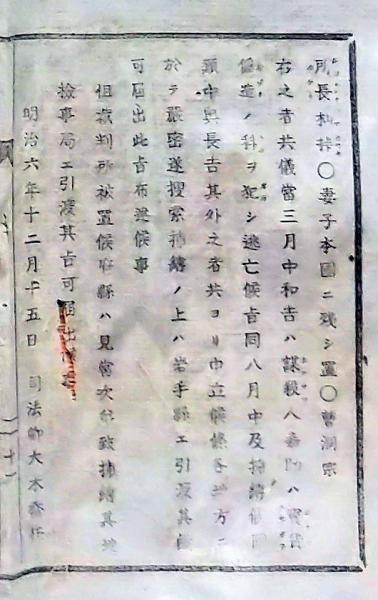 所長 〇妻子本國ニ残シ置〇曹洞宗
右之者共儀當三月中和吉ハ謀殺八 ハ寳貨
僞造ノ科ヲ犯シ逃亡候 同八月中及
頭中與長吉其外之者共ヨリ申立候條各 方ニ
於テ嚴密遂捜索捕縛ノ上ハ岩手縣エ引渡其
可届出此旨布達候事
但裁判所被置候府縣ハ見當次 致捕縛其地
檢事局エ引渡其旨可届出
明治六年十二月 五日 司法 大木
十